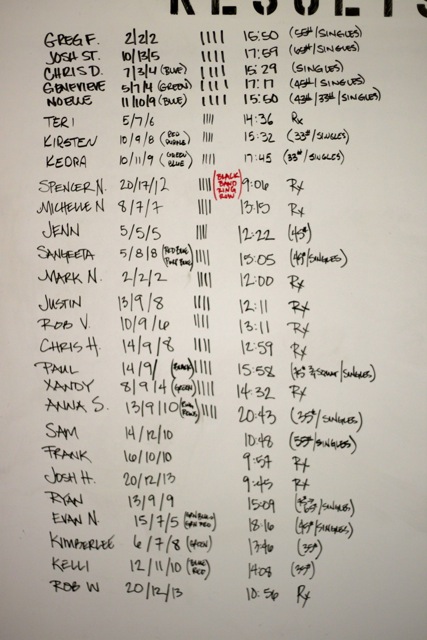 RESULTS
GREG F. 2/2/2 |||| 16:50 (55#/SINGLES)
JOSH ST. 10/13/5 |||| 17:59 (65#/SINGLES)
CHRIS D. 7/3/4 (BLUE) |||| 15:29 (SINGLES)
GENEVIEVE 5/7/4 (GREEN) |||| 17:17 (45#/SINGLES)
NOELLE 11/10/9 (BLUE) |||| 15:50 (43#/33#/SINGLES)
TERI 5/7/6 |||| 14:36 Rx
KIRSTEN 10/9/8 (RED |||| 15:32 (33#/SINGLES)
KEORA 10/11/9 (GREEN BLUE) |||| 17:45 (33#/SINGLES)
SPENCER N. 20/17/12 |||| BLACK BAND RING ROW 9:06 Rx
MICHELLE N 8/7/7 |||| 13:15 Rx
JENN 5/5/5 |||| 12:22 (45#)
SANGEETA 5/8/8 |||| 15:05 (45#/SINGLES)
MARK N. 2/2/2 |||| 12:00 Rx
JUSTIN 13/9/8 |||| 12:11 Rx
ROB V. 10/9/16 |||| 13:11 Rx
CHRIS H. 14/9/8 |||| 12:59 Rx
PAUL 14/9/ (BLACK) |||| 15:58
XANDY 8/9/4 (GREEN) |||| 14:32 Rx
ANNA S. 13/9/10 |||| 20:43 (35#/SINGLES)
SAM 14/12/10 10:48 (55#/SINGLES)
FRANK 16/10/10 9:57 Rx
JOSH H. 20/12/13 9:45 Rx
RYAN 13/9/9 15:09
EVAN N. 15/7/5 18:16 (45#/SINGLES)
KIMBERLEE 6/7/8 (GREEN) 13:46 (35#)
KELLI 12/11/10 (BLUE RED) 14:08 (35#)
ROB W 20/12/13 10:56 Rx